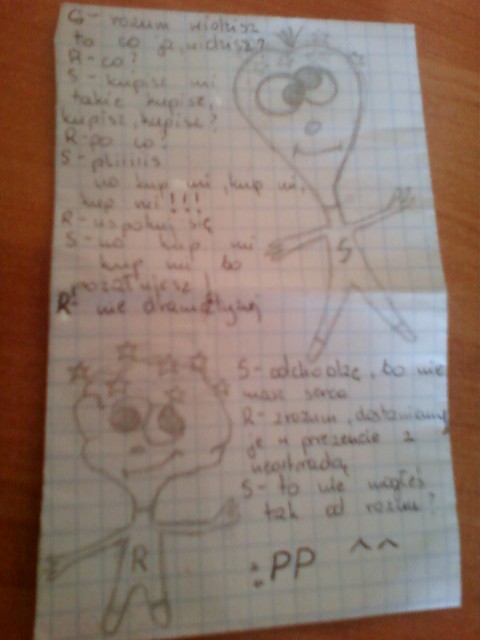 S - rozum widzisz
to co ja widzisz?
R - co?
S - kupisz mi
takie kupisz,
kupisz, kupisz?
R - po co?
S - pliiiiis
no kup mi, kup mi,
kup mi!!!
R - uspokuj się
S - no kup mi
kup mi bo
pożałujesz!
R - nie dramatyzuj
S
S - odchodzę, bo nie
masz serca
R - zrozum, dostaniemy
je w prezencie z
neostradą
S - to nie mogłeś
tak od razu?
R
:PP ^^